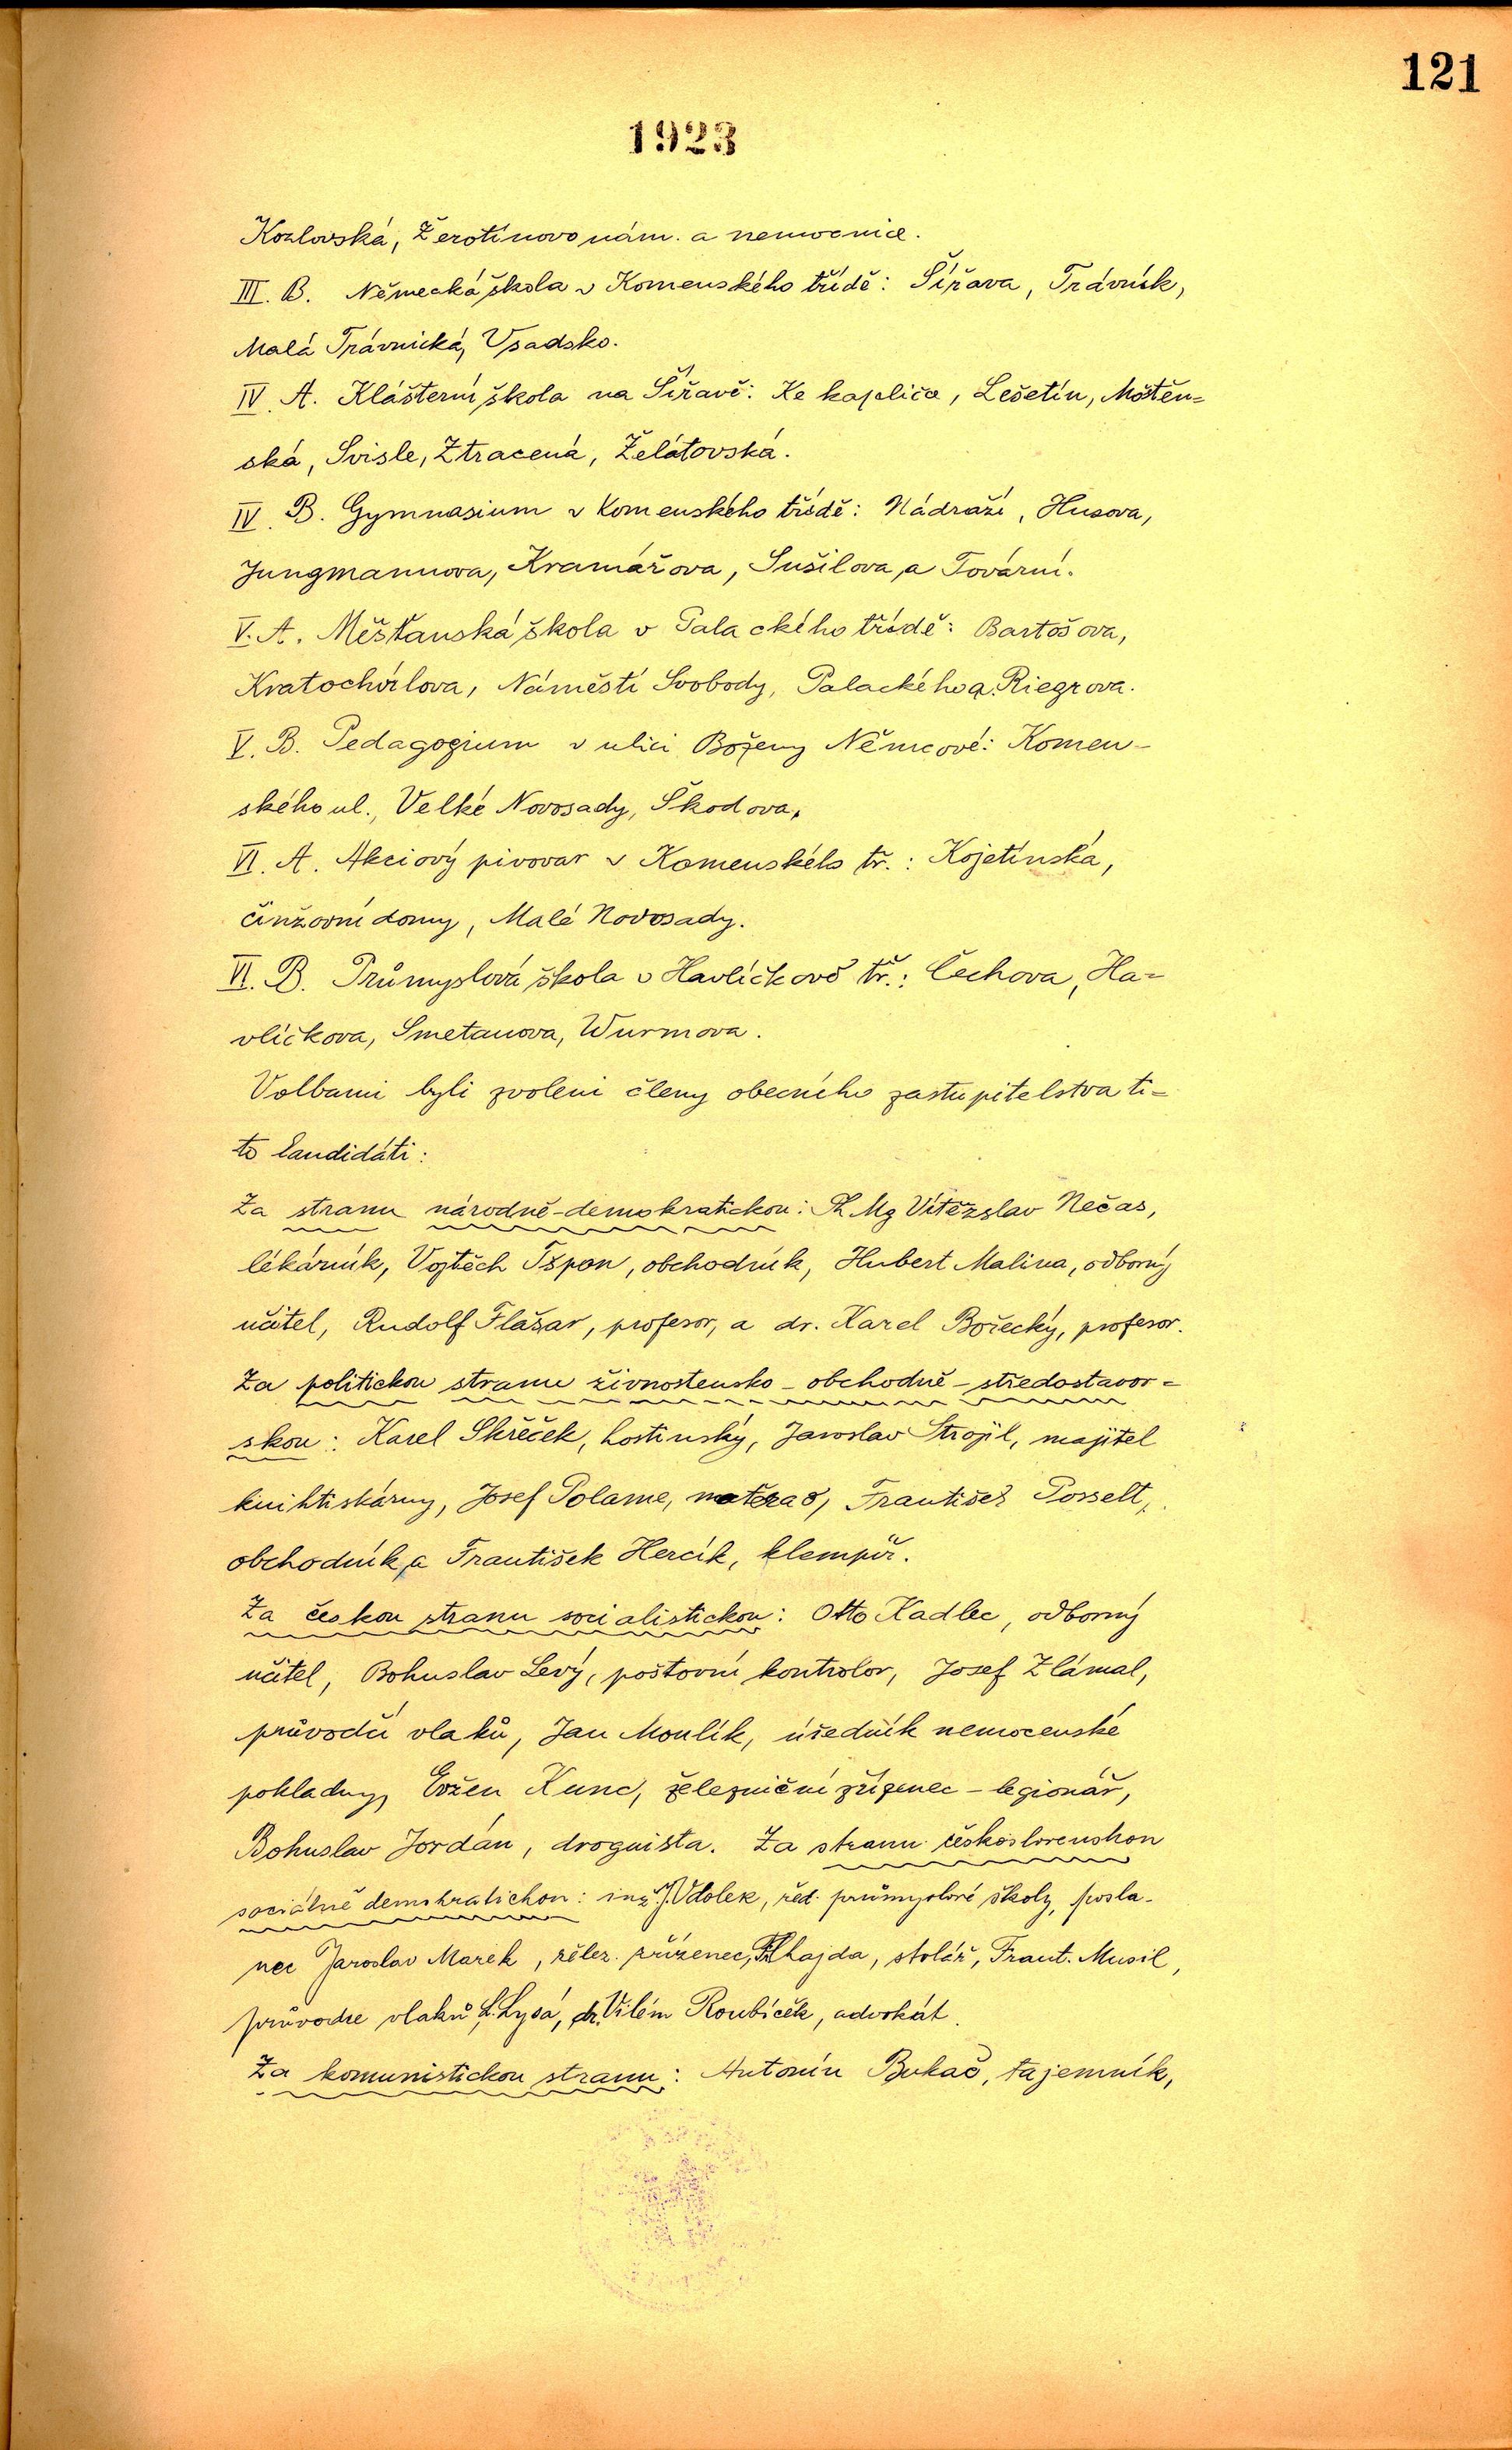 121
1923
Kozlovská, Žerotínovo nám. a nemocnice.
III. B. Německá škola v Komenského třídě: Šířava, Trávník,
Malá Trávnická, Vsadsko.
IV. A. Klášterní škola na Šířavě: Ke kapličce, Lešetín, Mostěn=
ská, Svisle, Ztracená, Želátovská.
IV. B. Gymnasium v Komenského třídě: Nádraží, Husova,
Jungmannova, Kramářova, Sušilova, a Tovární.
V. A. Měšťanská škola v Palackého třídě: Bartošova,
Kratochvílova, Náměstí Svobody, Palackého a Riegrova.
V. B. Pedagogium v ulici Boženy Němcové: Komen-
ského ul., Velké Novosady, Škodova.
VI. A. Akciový pivovar v Komenského tř.: Kojetínská,
činžovní domy, Malé Novosady.
VI. B. Průmyslová škola v Havlíčkově tř.: Čechova, Ha=
vlíčkova, Smetanova, Wurmova.
Volbami byli zvoleni členy obecního zastupitelstva ti=
to kandidáti:
Za stranu národně-demokratickou: Ph Mg Vítězslav Nečas,
lékárník, Vojtěch Tšpon, obchodník, Hubert Malina, odborný
učitel, Rudolf Flašar, profesor, a dr. Karel Bořecký, profesor.
Za politickou stranu živnostensko-obchodně-středostavov=
skou: Karel Skřeček, hostinský, Jaroslav Strojil, majitel
knihtiskárny, Josef Polame, František Posselt,
obchodník, a František Hercík, klempíř.
Za českou stranu socialistickou: Otto Kadlec, odborný
učitel, Bohuslav Levý, poštovní kontrolor, Josef Zlámal,
průvodčí vlaků, Jan Moulík, úředník nemocenské
pokladny, Evžen Kunc, železniční zřízenec - legionář,
Bohuslav Jordán, droguista. Za stranu československou
sociálně demokratickou: inž. J. Vdolek, řed. průmyslové školy, posla-
nec Jaroslav Marek, želez. zřízenec, Fr. Chajda, stolář, Frant. Musil,
průvodce vlaků, L. Lysá, dr. Vilém Roubíček, advokát.
Za komunistickou stranu: Antonín Bukač, tajemník,